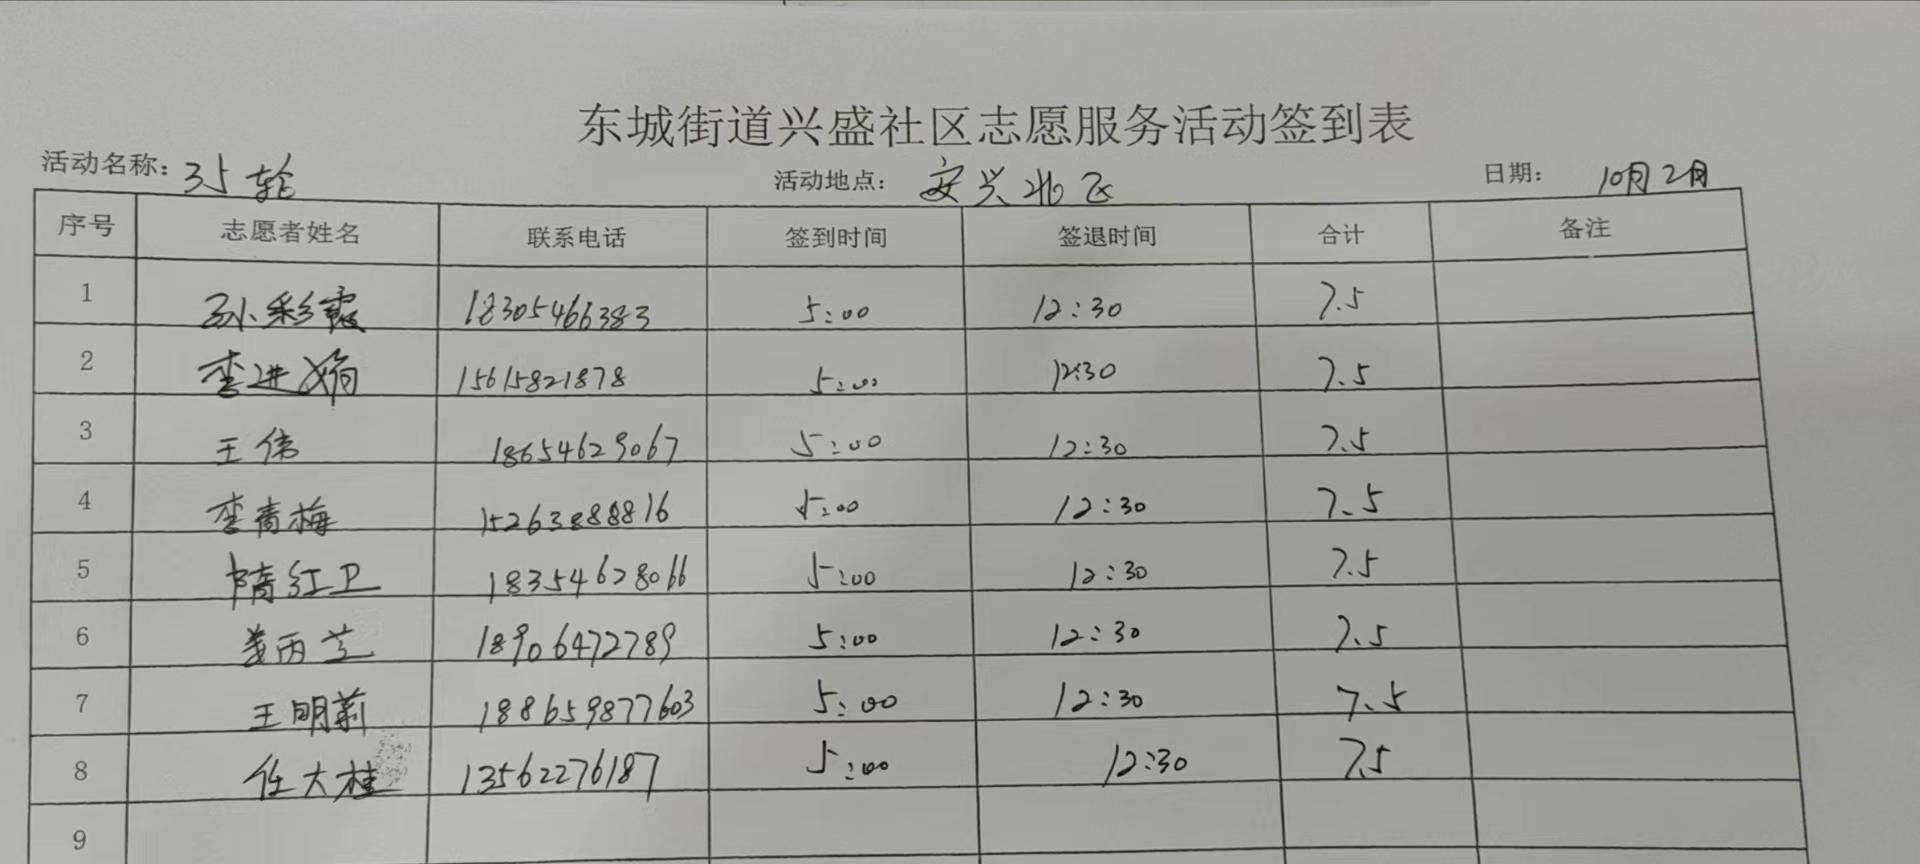 东城街道兴盛社区志愿服务活动签到表
活动名称：35轮 活动地点：安兴北区 日期：10月2日
序号 志愿者姓名 联系电话 签到时间 签退时间 合计 备注
1 孙彩霞 18305466383 5:00 12:30 7.5
2 李进 15615821878 5:00 12:30 7.5
3 王伟 18654629067 5:00 12:30 7.5
4 李青梅 15263888816 5:00 12:30 7.5
5 隋红卫 18354628066 5:00 12:30 7.5
6 姜丙兰 18906472789 5:00 12:30 7.5
7 王明莉 188659877603 5:00 12:30 7.5
8 任大桂 13562276187 5:00 12:30 7.5
9